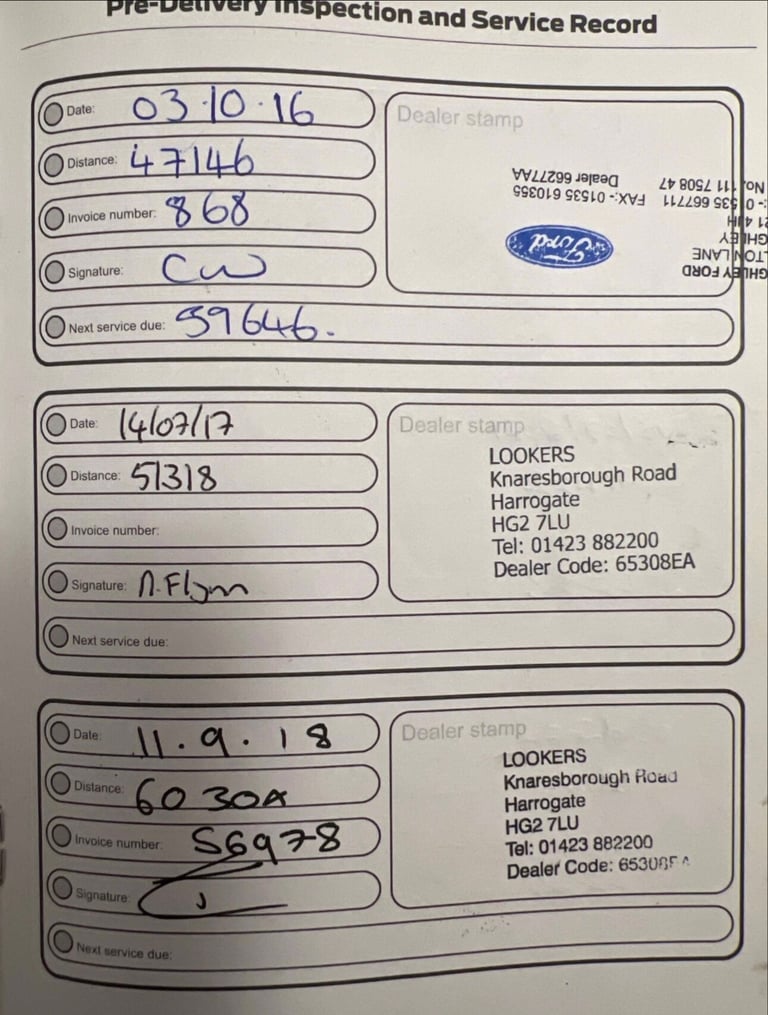 Pre-Delivery Inspection and Service Record
Date: 03·10·16
Distance: 47146
Invoice number: 868
Signature: CW
Next service due: 59646.
Dealer stamp
GHLEY FORD
TON LANE
GHLEY
21 4JH
:- 0 535 667711 FAX:- 01535 610355
No. 111 7508 47 Dealer 66277AA
Ford
Date: 14/07/17
Distance: 51318
Invoice number:
Signature: Flynn
Next service due:
Dealer stamp
LOOKERS
Knaresborough Road
Harrogate
HG2 7LU
Tel: 01423 882200
Dealer Code: 65308EA
Date: 11.9.18
Distance: 6030
Invoice number: S6978
Signature:
Next service due:
Dealer stamp
LOOKERS
Knaresborough Road
Harrogate
HG2 7LU
Tel: 01423 882200
Dealer Code: 65308EA